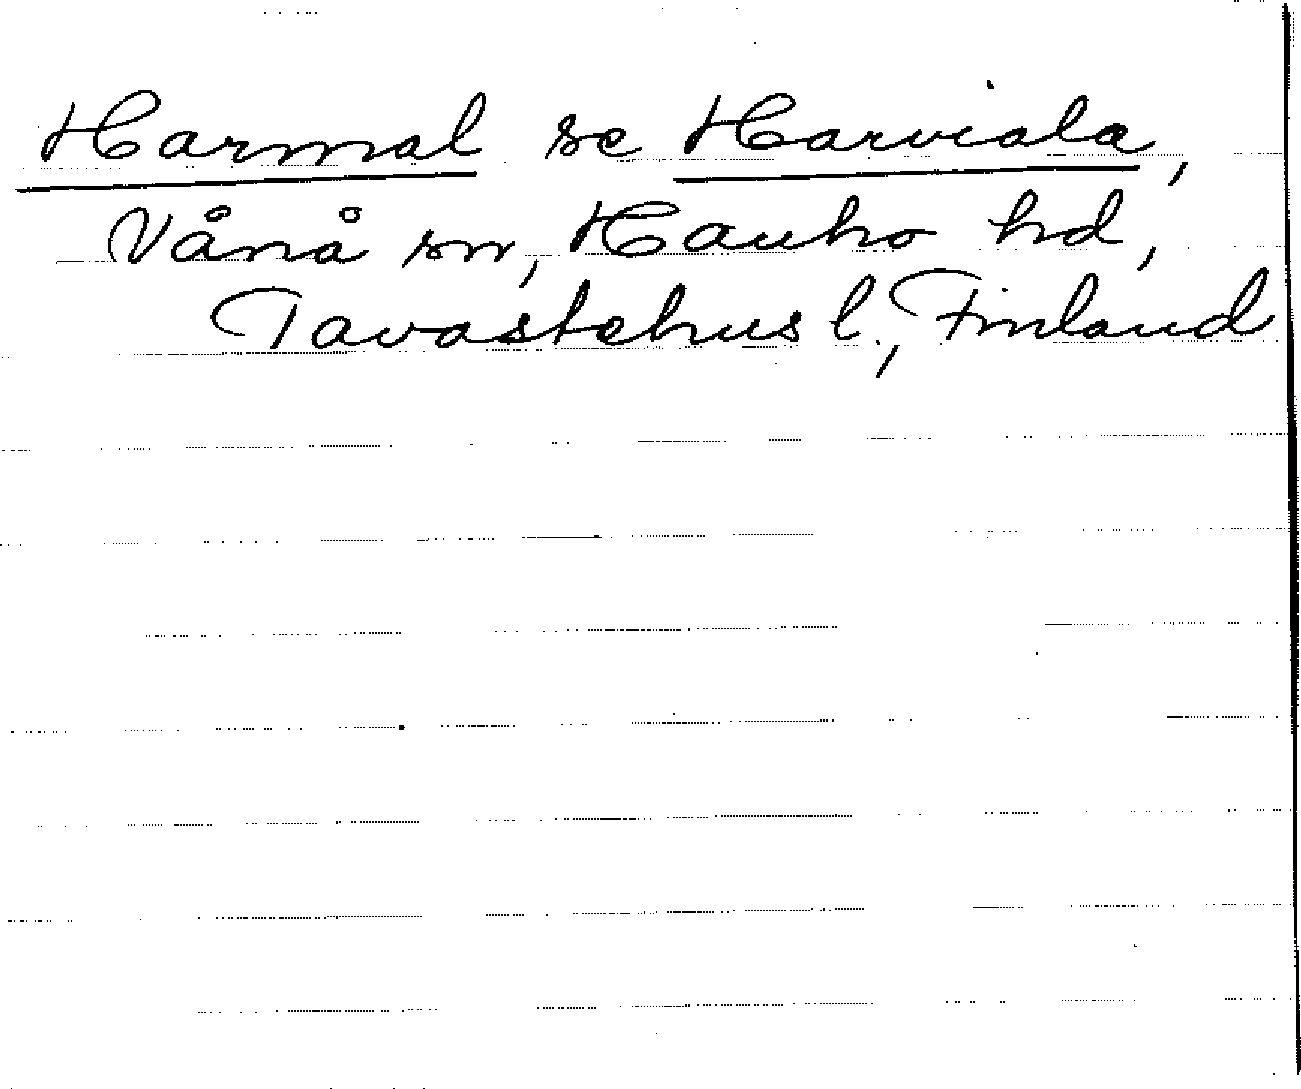 Harmal se Harviala,
Vånå sn, Hauho hd,
Tavastehus l., Finland